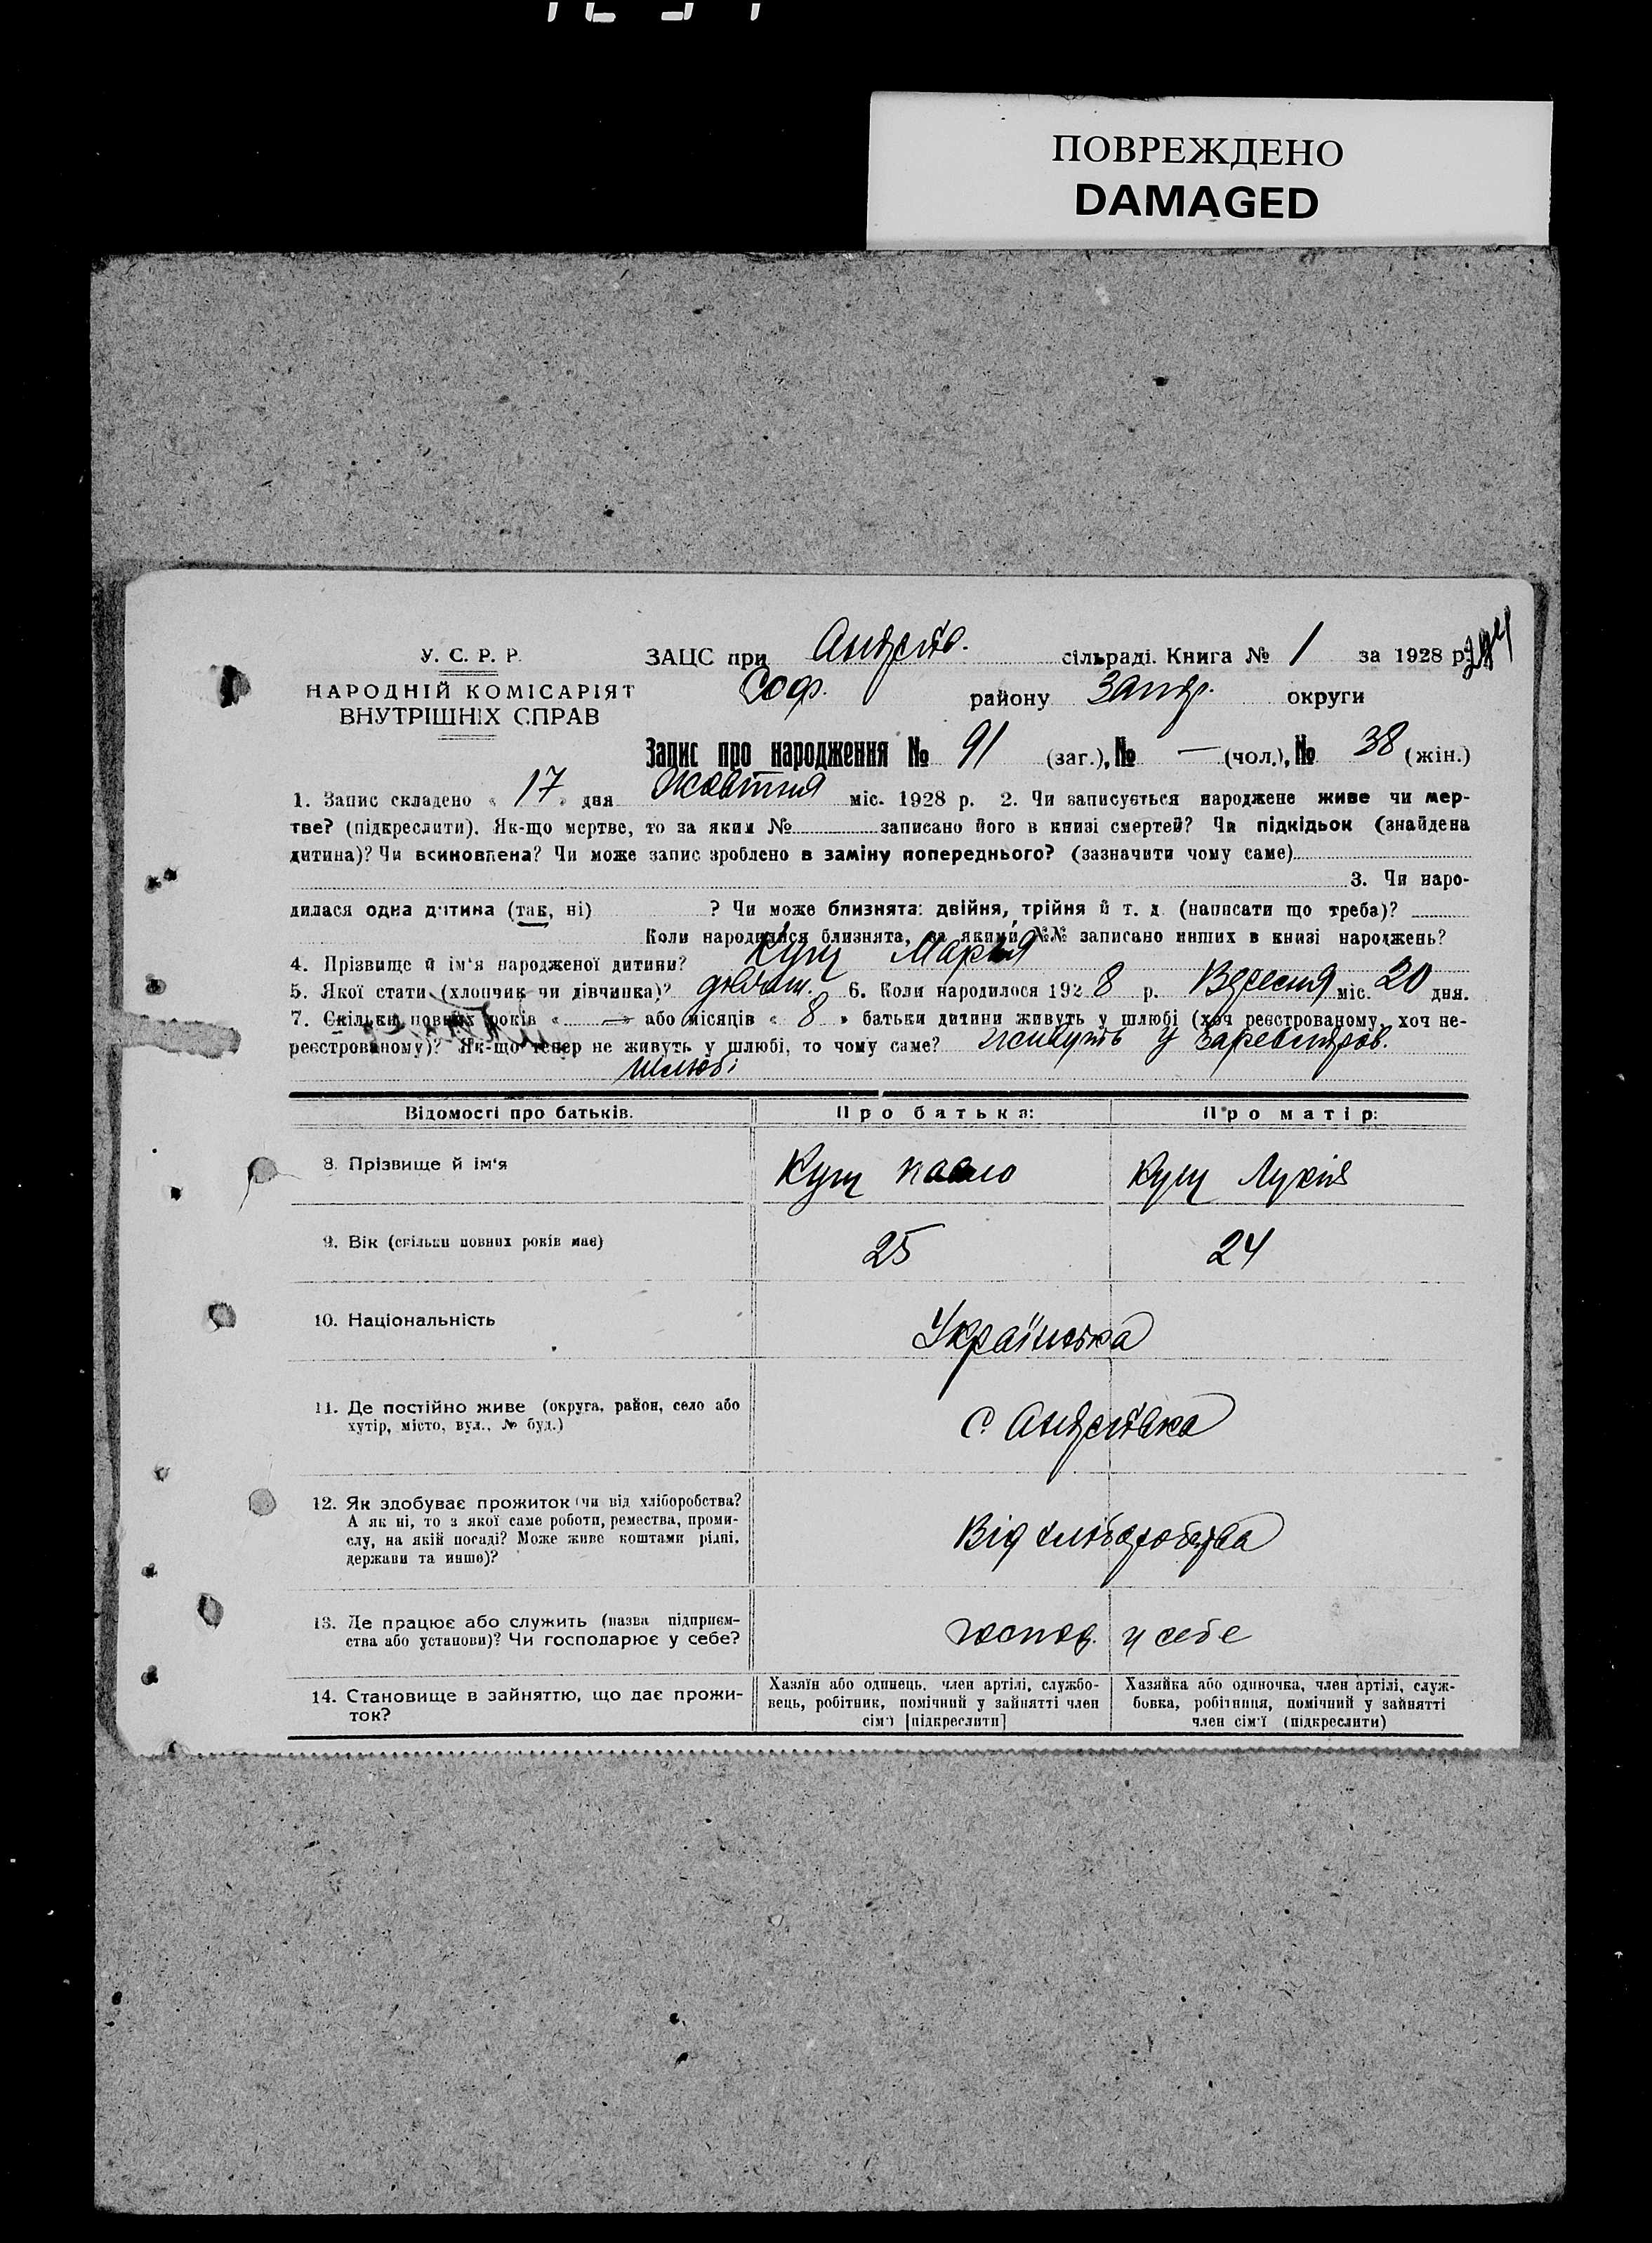 ПОВРЕЖДЕНО
DAMAGED
У. С. Р. Р.
НАРОДНІЙ КОМІСАРІЯТ
ВНУТРІШНІХ СПРАВ
ЗАЦС при сільраді. Книга № 1 за 1928 р.
Соф. району Запр. округи
Запис про народження № 91 (заг.), № — (чол.), № 38 (жін.)
1. Запис складено « 17 » дня Жовтня міс. 1928 р. 2. Чи записується народжене живе чи мер-
тве? (підкреслити). Як-що мертве, то за яким № записано його в книзі смертей? Чи підкідьок (знайдена
дитина)? Чи всиновлена? Чи може запис зроблено в заміну попереднього? (зазначити чому саме)
3. Чи наро-
дилася одна дитина (так, ні) ? Чи може близнята: двійня, трійня й т. д. (написати що треба)?
Коли народилися близнята, за якими №№ записано инших в книзі народжень?
4. Прізвище й ім'я народженої дитини? Кущ Марія
5. Якої стати (хлопчик чи дівчинка)? дівчат. 6. Коли народилося 1928 р. Вересня міс. 20 дня.
7. Скільки повних років « — » або місяців « 8 » батьки дитини живуть у шлюбі (хоч реєстрованому, хоч не-
реєстрованому)? Як-що тепер не живуть у шлюбі, то чому саме? живуть у зареєстров.
шлюбі
Відомості про батьків. Про батька: Про матір:
8. Прізвище й ім'я Кущ Павло Кущ Лукія
9. Вік (скільки повних років має) 25 24
10. Національність Українська
11. Де постійно живе (округа, район, село або
хутір, місто, вул., № буд.)
с. Андріївка
12. Як здобуває прожиток (чи від хліборобства?
А як ні, то з якої саме роботи, ремества, проми-
слу, на якій посаді? Може живе коштами рідні,
держави та инше)?
Від хліборобства
13. Де працює або служить (назва підприєм-
ства або установи)? Чи господарює у себе?
господ. у себе
14. Становище в зайняттю, що дає прожи-
ток?
Хазяїн або одинець, член артілі, службо-
вець, робітник, помічний у зайнятті член
сім'ї [підкреслити]
Хазяйка або одиночка, член артілі, служ-
бовка, робітниця, помічний у зайнятті
член сім'ї (підкреслити)